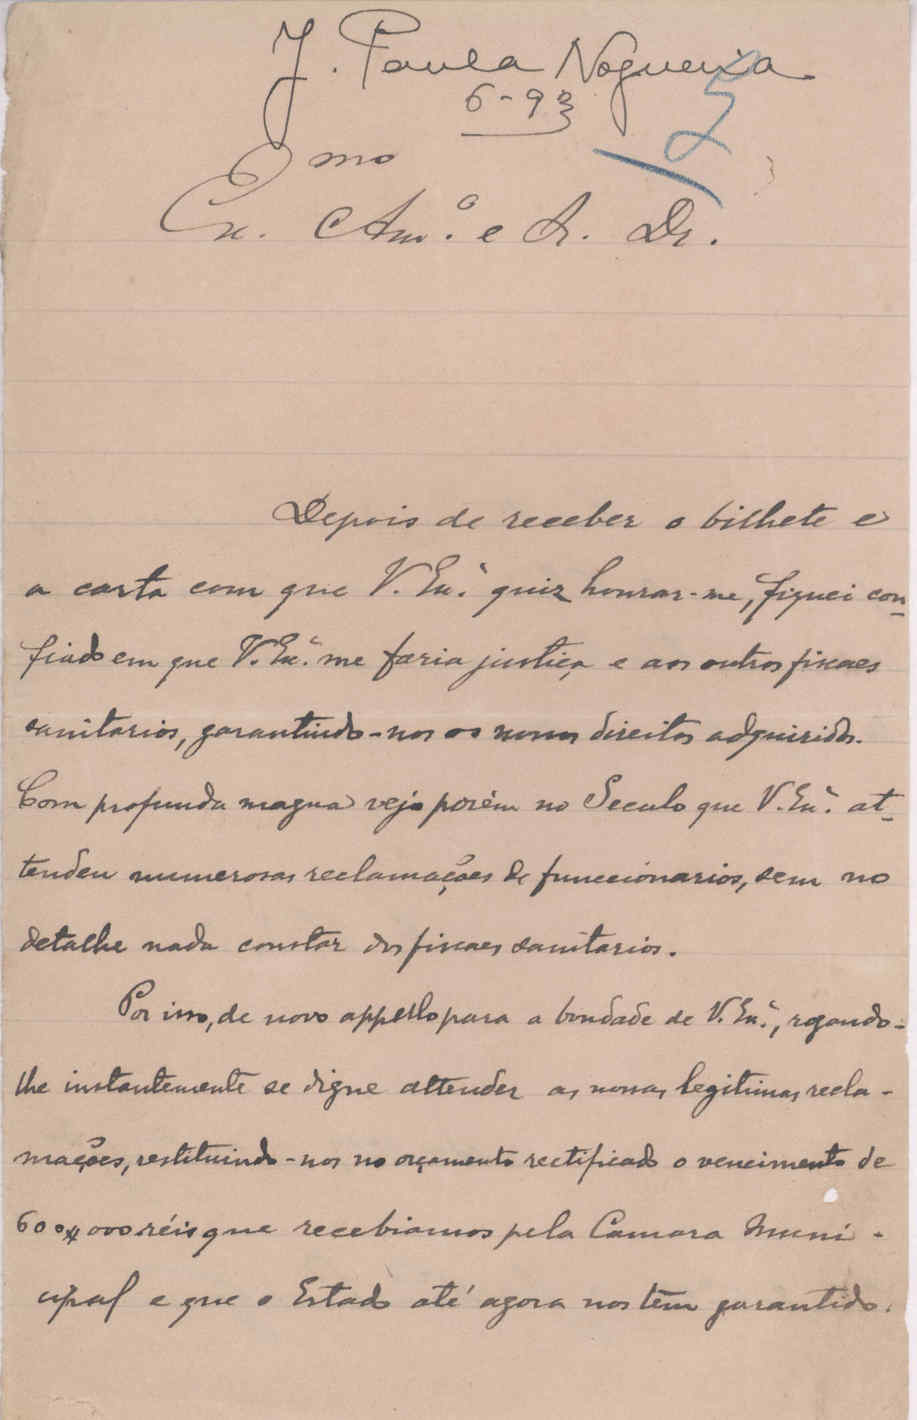 J. Paula Nogueira
6-93
5
Exmo
Am.º e Sr. Dr.
Depois de receber o bilhete e
a carta com que V. Ex.ª quiz honrar-me, fiquei con-
fiado em que V. Ex.ª me faria justiça e aos outros fiscaes
sanitarios, garantindo-nos os nossos direitos adquiridos.
Com profunda magua vejo porém no Seculo que V. Ex.ª at-
tendeu numerosas reclamações de funccionarios, sem no
detalhe nada constar dos fiscaes sanitarios.
Por isso, de novo appello para a bondade de V. Ex.ª, rogando-
lhe instantemente se digne attender as nossas legitimas recla-
mações, restituindo-nos no orçamento rectificado o vencimento de
600$000 réis que recebiamos pela Camara Muni-
cipal e que o Estado até agora nos têm garantido.